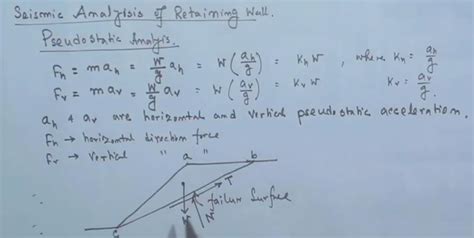 Seismic Analysis of Retaining Wall.
Pseudostatic Analysis.
Fh = m ah = W/g ah = W (ah/g) = Kh W , where Kh = ah/g
Fv = m av = W/g av = W (av/g) = Kv W Kv = av/g.
ah & av are horizontal and vertical pseudostatic acceleration.
Fh → horizontal direction force
Fv → vertical " "
a b
T
failur surface
W N
c